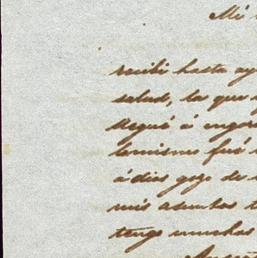 Mi
recibi hasta ay
salud, la que
llegué á engor
lemismo fué
ádios gozo de
mis asuntos t
tengo muchas